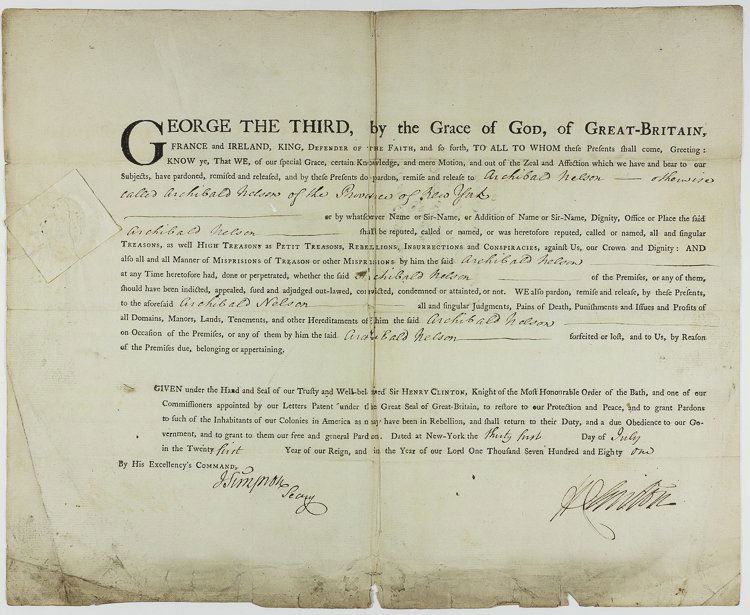 GEORGE THE THIRD, by the Grace of GOD, of GREAT-BRITAIN,
FRANCE and IRELAND, KING, DEFENDER OF THE FAITH, and so forth, TO ALL TO WHOM these Presents shall come, Greeting:
KNOW ye, That WE, of our special Grace, certain Knowledge, and mere Motion, and out of the Zeal and Affection which we have and bear to our
Subjects, have pardoned, remised and released, and by these Presents do pardon, remise and release to Archibald Nelson — otherwise
called Archibald Nelson of the Province of New York
or by whatsoever Name or Sir-Name, or Addition of Name or Sir-Name, Dignity, Office or Place the said
Archibald Nelson — shall be reputed, called or named, or was heretofore reputed, called or named, all and singular
TREASONS, as well HIGH TREASONS as PETIT TREASONS, REBELLIONS, INSURRECTIONS and CONSPIRACIES, against Us, our Crown and Dignity: AND
also all and all Manner of MISPRISIONS OF TREASON or other MISPRISIONS by him the said Archibald Nelson —
at any Time heretofore had, done or perpetrated, whether the said Archibald Nelson of the Premises, or any of them,
should have been indicted, appealed, sued and adjudged out-lawed, convicted, condemned or attainted, or not. WE also pardon, remise and release, by these Presents,
to the aforesaid Archibald Nelson — all and singular Judgments, Pains of Death, Punishments and Issues and Profits of
all Domains, Manors, Lands, Tenements, and other Hereditaments of him the said Archibald Nelson —
on Occasion of the Premises, or any of them by him the said Archibald Nelson — forfeited or lost, and to Us, by Reason
of the Premises due, belonging or appertaining,
GIVEN under the Hand and Seal of our Trusty and Well-beloved Sir HENRY CLINTON, Knight of the Most Honourable Order of the Bath, and one of our
Commissioners appointed by our Letters Patent under the Great Seal of Great-Britain, to restore to our Protection and Peace, and to grant Pardons
to such of the Inhabitants of our Colonies in America as may have been in Rebellion, and shall return to their Duty, and a due Obedience to our Go-
vernment, and to grant to them our free and general Pardon. Dated at New-York the thirty first Day of July
in the Twenty first Year of our Reign, and in the Year of our Lord One Thousand Seven Hundred and Eighty one
By His Excellency's COMMAND,
J Simpson
Secry
H Clinton